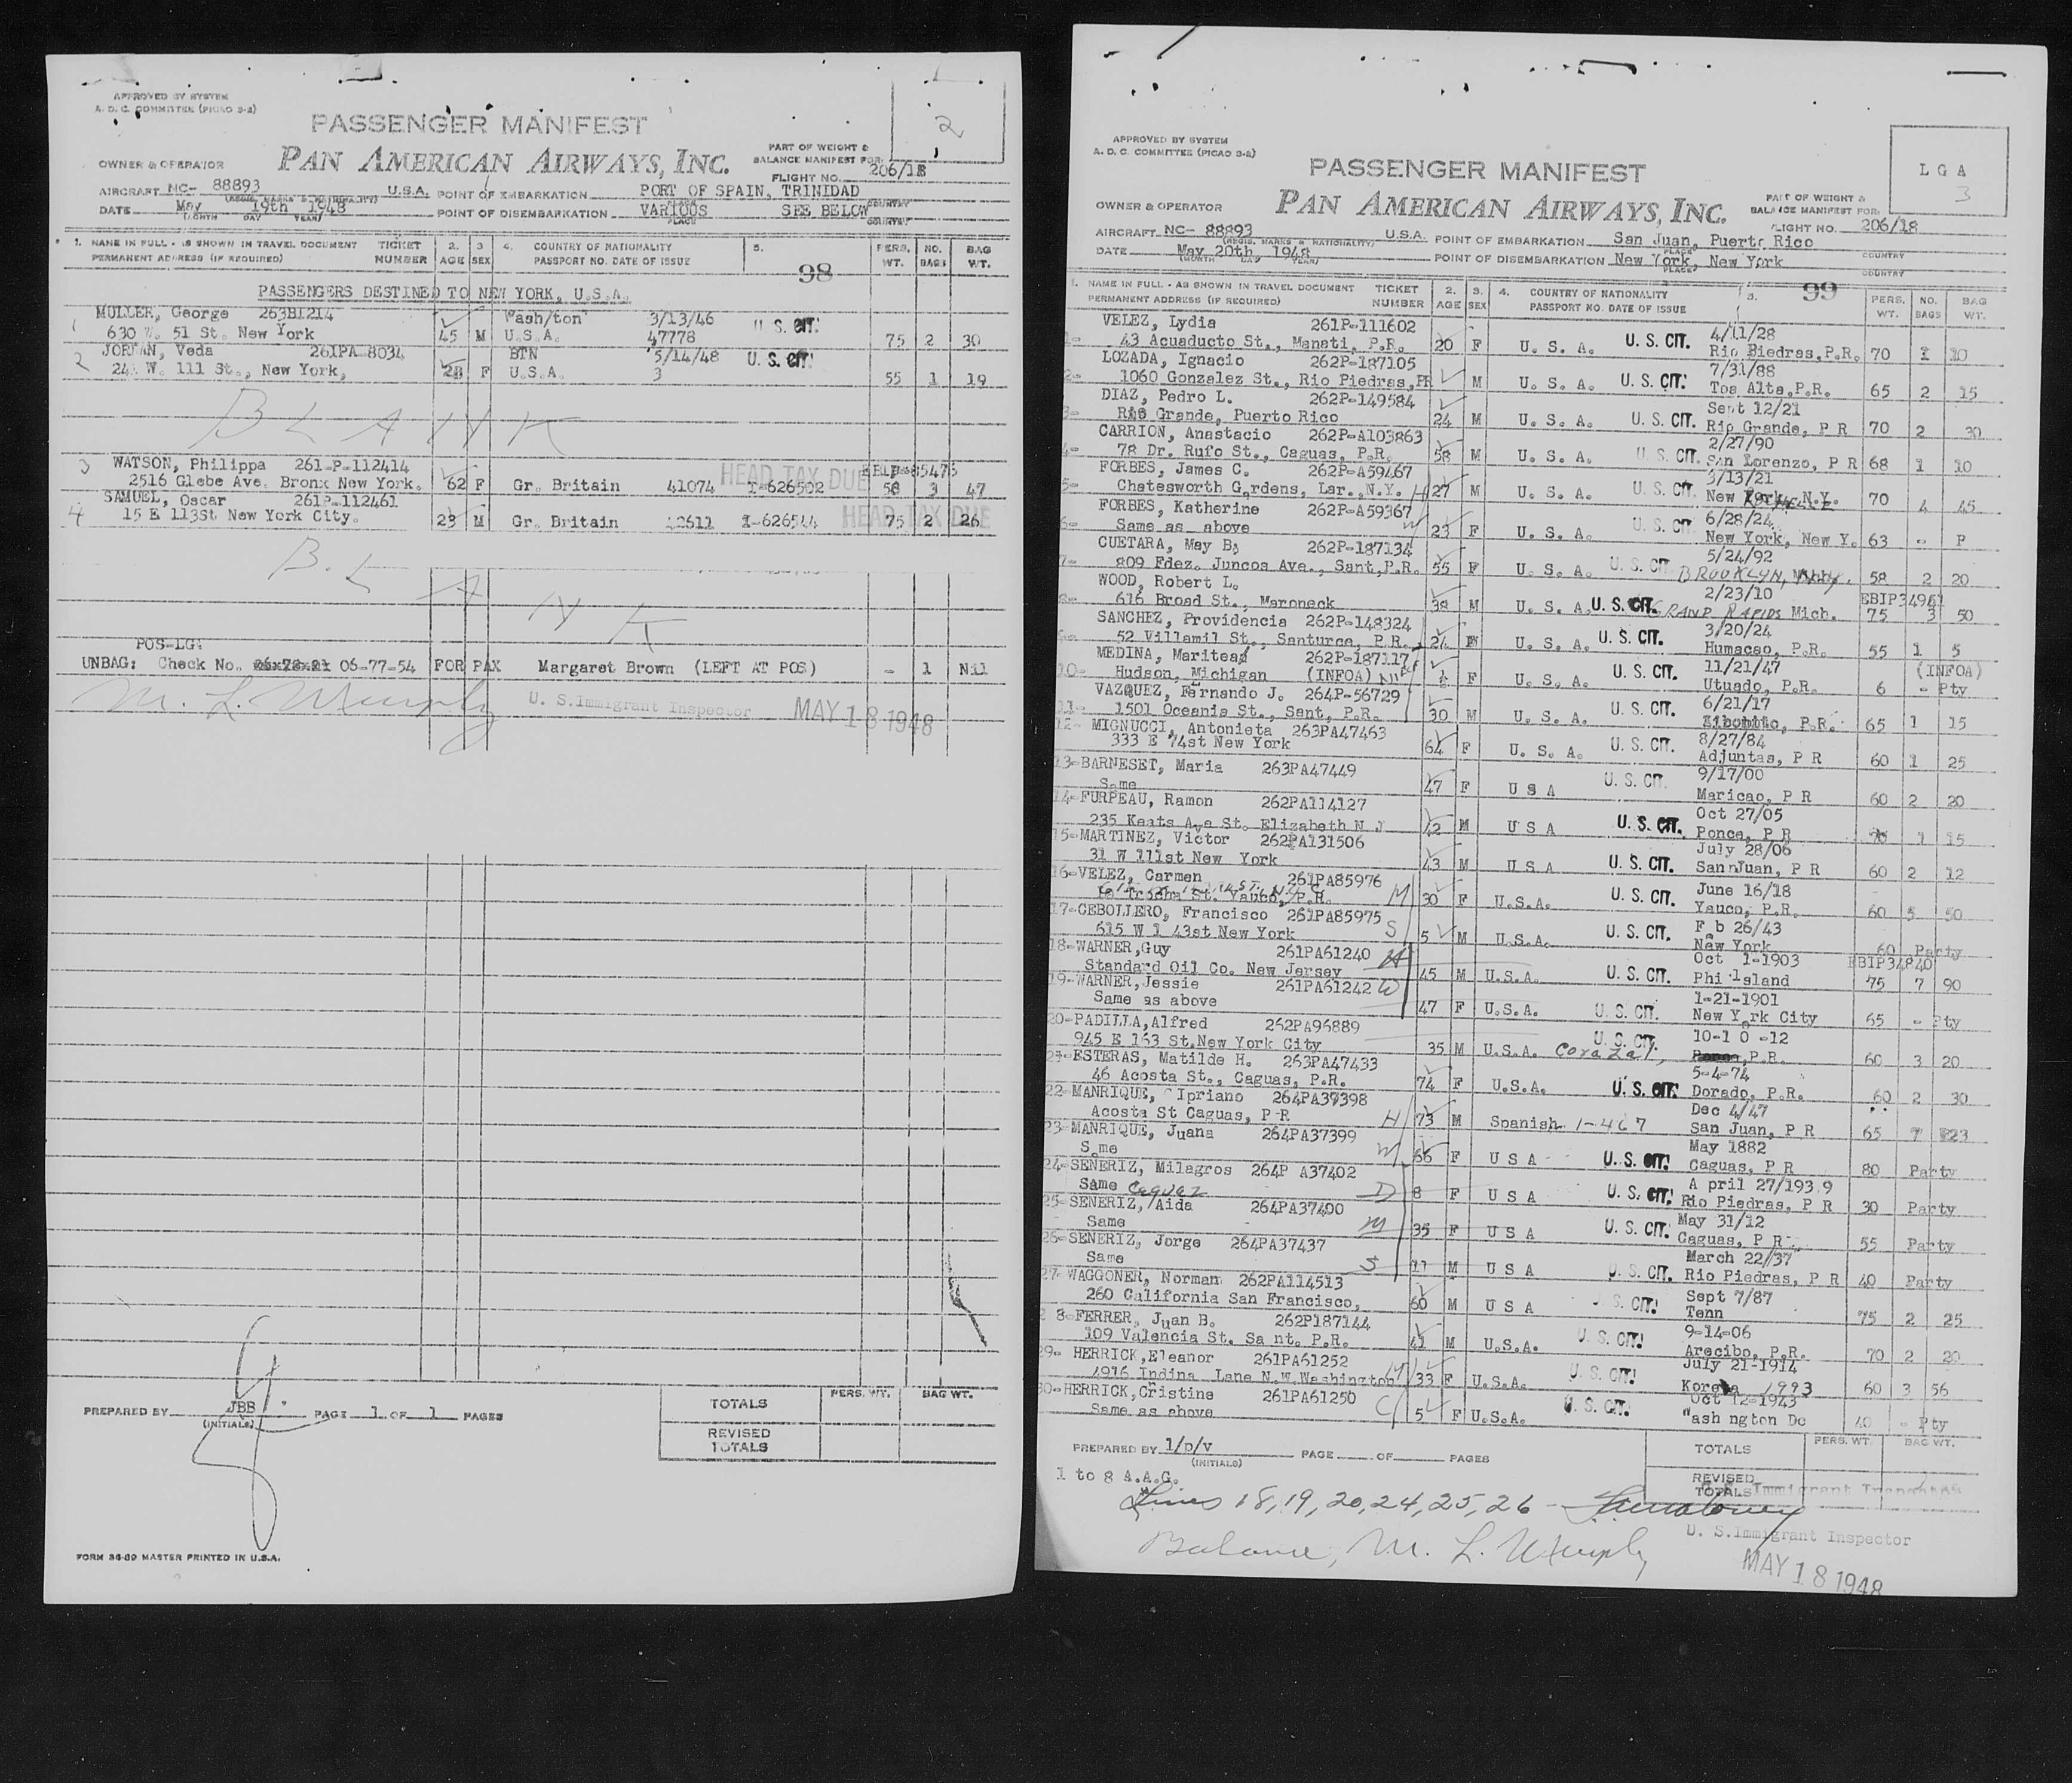 APPROVED BY SYSTEM
A. D. C. COMMITTEE (PICAO 3-2)
2
PASSENGER MANIFEST
OWNER & OPERATOR PAN AMERICAN AIRWAYS, INC.
PART OF WEIGHT & BALANCE MANIFEST FOR:
FLIGHT NO. 206/18
AIRCRAFT NC- 88893 U.S.A. POINT OF EMBARKATION PORT OF SPAIN, TRINIDAD
(REGIS. MARKS & NATIONALITY) PLACE COUNTRY
DATE May 19th 1948 POINT OF DISEMBARKATION VARIOUS SEE BELOW
(MONTH DAY YEAR) PLACE COUNTRY
1. NAME IN FULL - AS SHOWN IN TRAVEL DOCUMENT TICKET 2. 3 4. COUNTRY OF NATIONALITY 5. PERS. NO. BAG
PERMANENT ADDRESS (IF REQUIRED) NUMBER AGE SEX PASSPORT NO. DATE OF ISSUE WT. BAGS WT.
98
PASSENGERS DESTINED TO NEW YORK, U.S.A.
1 MULLER, George 263B1214 Wash/ton 3/13/46 U S. CIT.
630 W. 51 St. New York 45 M U.S.A. 47778 75 2 30
2 JORDAN, Veda 261PA 8034 BTN 5/14/48 U. S. CIT.
24 W. 111 St., New York, 28 F U.S.A. 3 55 1 19
BLANK
3 WATSON, Philippa 261-P-112414 HEAD TAX DUE
2516 Glebe Ave. Bronx New York. 62 F Gr. Britain 41074 I-626502 58 3 47
4 SAMUEL, Oscar 261P-112461
15 E 113St New York City. 23 M Gr. Britain I-626544 HEAD TAX DUE 75 2 26
BLANK
POS-LGA
UNBAG: Check No. 06-77-54 FOR PAX Margaret Brown (LEFT AT POS) - 1 Nil
M. L. Murphy U. S. Immigrant Inspector MAY 18 1948
TOTALS PERS. WT. BAG WT.
PREPARED BY JBB PAGE 1 OF 1 PAGES
(INITIALS)
REVISED TOTALS
FORM 36-39 MASTER PRINTED IN U.S.A.
APPROVED BY SYSTEM
A. D. C. COMMITTEE (PICAO 3-2)
L G A
3
PASSENGER MANIFEST
OWNER & OPERATOR PAN AMERICAN AIRWAYS, INC.
PART OF WEIGHT & BALANCE MANIFEST FOR:
FLIGHT NO. 206/18
AIRCRAFT NC- 88893 U.S.A. POINT OF EMBARKATION San Juan, Puerto Rico
(REGIS. MARKS & NATIONALITY) PLACE COUNTRY
DATE May 20th 1948 POINT OF DISEMBARKATION New York, New York
(MONTH DAY YEAR) PLACE COUNTRY
1. NAME IN FULL - AS SHOWN IN TRAVEL DOCUMENT TICKET 2. 3. 4. COUNTRY OF NATIONALITY 5. PERS. NO. BAG
PERMANENT ADDRESS (IF REQUIRED) NUMBER AGE SEX PASSPORT NO. DATE OF ISSUE WT. BAGS WT.
99
VELEZ, Lydia 261P-111602 4/11/28
1- 43 Acuaducto St., Manati, P.R. 20 F U. S. A. U. S. CIT. Rio Piedras, P.R. 70 1 10
LOZADA, Ignacio 262P-187105 7/31/88
2- 1060 Gonzalez St., Rio Piedras, PR M U. S. A. U. S. CIT. Toa Alta, P.R. 65 2 15
DIAZ, Pedro L. 262P-149584 Sept 12/21
3- Rio Grande, Puerto Rico 24 M U. S. A. U. S. CIT. Rio Grande, P R 70 2 30
CARRION, Anastacio 262P-A103863 2/27/90
4- 78 Dr. Rufo St., Caguas, P.R. 58 M U. S. A. U. S. CIT. San Lorenzo, P R 68 1 10
FORBES, James C. 262P-A59467 3/13/21
5- Chatesworth Gardens, Lar., N.Y. H 27 M U. S. A. U. S. CIT. New 70 4 45
FORBES, Katherine 262P-A59367 6/28/24
6- Same as above W 23 F U. S. A. U. S. CIT. New York, New Y. 63 - P
CUETARA, May B. 262P-187134 5/24/92
7- 809 Fdez. Juncos Ave., Sant, P.R. 55 F U. S. A. U. S. CIT. BROOKLYN, 58 2 20
WOOD, Robert L. 2/23/10 EBIP34967
8- 616 Broad St., Maroneck 38 M U. S. A. U. S. CIT. GRAND RAPIDS Mich. 75 3 50
SANCHEZ, Providencia 262P-148324 3/20/24
9- 52 Villamil St., Santurce, P.R. 24 F U. S. A. U. S. CIT. Humacao, P.R. 55 1 5
MEDINA, Maritess 262P-187117 11/21/47 (INFOA)
10- Hudson, Michigan (INFOA) F U. S. A. U. S. CIT. Utuado, P.R. 6 - Pty
VAZQUEZ, Fernando J. 264P-56729 6/21/17
11- 1501 Oceania St., Sant, P.R. 30 M U. S. A. U. S. CIT. P.R. 65 1 15
12- MIGNUCCI, Antonieta 263PA47463 8/27/84
333 E 74st New York 64 F U. S. A. U. S. CIT. Adjuntas, P R 60 1 25
13-BARNESET, Maria 263PA47449 9/17/00
Same 47 F U S A U. S. CIT. Maricao, P R 60 2 20
14-FURPEAU, Ramon 262PA114127 Oct 27/05
235 Keats Ave St. Elizabeth N J 42 M U S A U. S. CIT. Ponce, P R 1 15
15-MARTINEZ, Victor 262PA131506 July 28/06
31 W 111st New York 43 M U S A U. S. CIT. San Juan, P R 60 2 12
16-VELEZ, Carmen 261PA85976 M June 16/18
Trocha St. Yauco, P.R. 30 F U.S.A. U. S. CIT. Yauco, P.R. 60 5 50
17-CEBOLLERO, Francisco 261PA85975 S Feb 26/43
615 W 1 43st New York 5 M U.S.A. U. S. CIT. New York 60 Party
18-WARNER,Guy 261PA61240 H Oct 1-1903 EBIP34840
Standard Oil Co. New Jersey 45 M U.S.A. U. S. CIT. Phi Island 75 7 90
19-WARNER,Jessie 261PA61242 W 1-21-1901
Same as above 47 F U.S.A. U. S. CIT. New York City 65 - Pty
20-PADILLA,Alfred 262PA96889 10-1 0 -12
945 E 163 St.New York City 35 M U.S.A. U. S. CIT. Corozal, P.R. 60 3 20
21-ESTERAS, Matilde H. 263PA47433 5-4-74
46 Acosta St., Caguas, P.R. 74 F U.S.A. U. S. CIT. Dorado, P.R. 60 2 30
22-MANRIQUE, Cipriano 264PA37398 Dec 4/47
Acosta St Caguas, P R H 73 M Spanish 1-467 San Juan, P R 65 7 23
23-MANRIQUE, Juana 264PA37399 May 1882
Same W 66 F U S A U. S. CIT. Caguas, P R 80 Party
24-SENERIZ, Milagros 264P A37402 A pril 27/193.9
Same Caguas D 8 F U S A U. S. CIT. Rio Piedras, P R 30 Party
25-SENERIZ, Aida 264PA37400 May 31/12
Same M 35 F U S A U. S. CIT. Caguas, P R 55 Party
26-SENERIZ, Jorge 264PA37437 March 22/37
Same S 11 M U S A U. S. CIT. Rio Piedras, P R 40 Party
27-WAGGONER, Norman 262PA114513 Sept 7/87
260 California San Francisco, 60 M U S A U. S. CIT. Tenn 75 2 25
2 8-FERRER, Juan B. 262P187144 9-14-06
109 Valencia St. Sa nt. P.R. 41 M U.S.A. U. S. CIT. Arecibo, P.R. 70 2 20
29- HERRICK,Eleanor 261PA61252 July 21-1914
4976 Indina Lane N.W.Washington M 33 F U.S.A. U. S. CIT. Korea 60 3 56
30-HERRICK,Cristine 261PA61250 C Oct 12-1943
Same as above 5 F U.S.A. U. S. CIT. Wash ngton Dc 40 - Pty
PREPARED BY 1/p/v PAGE OF PAGES TOTALS PERS. WT. BAG WT.
(INITIALS)
1 to 8 A.A.G. REVISED TOTALS
Immigrant Inspector
Lines 18, 19, 20, 24, 25, 26 -
U. S. Immigrant Inspector
Balance, M. L. Murphy
MAY 18 1948